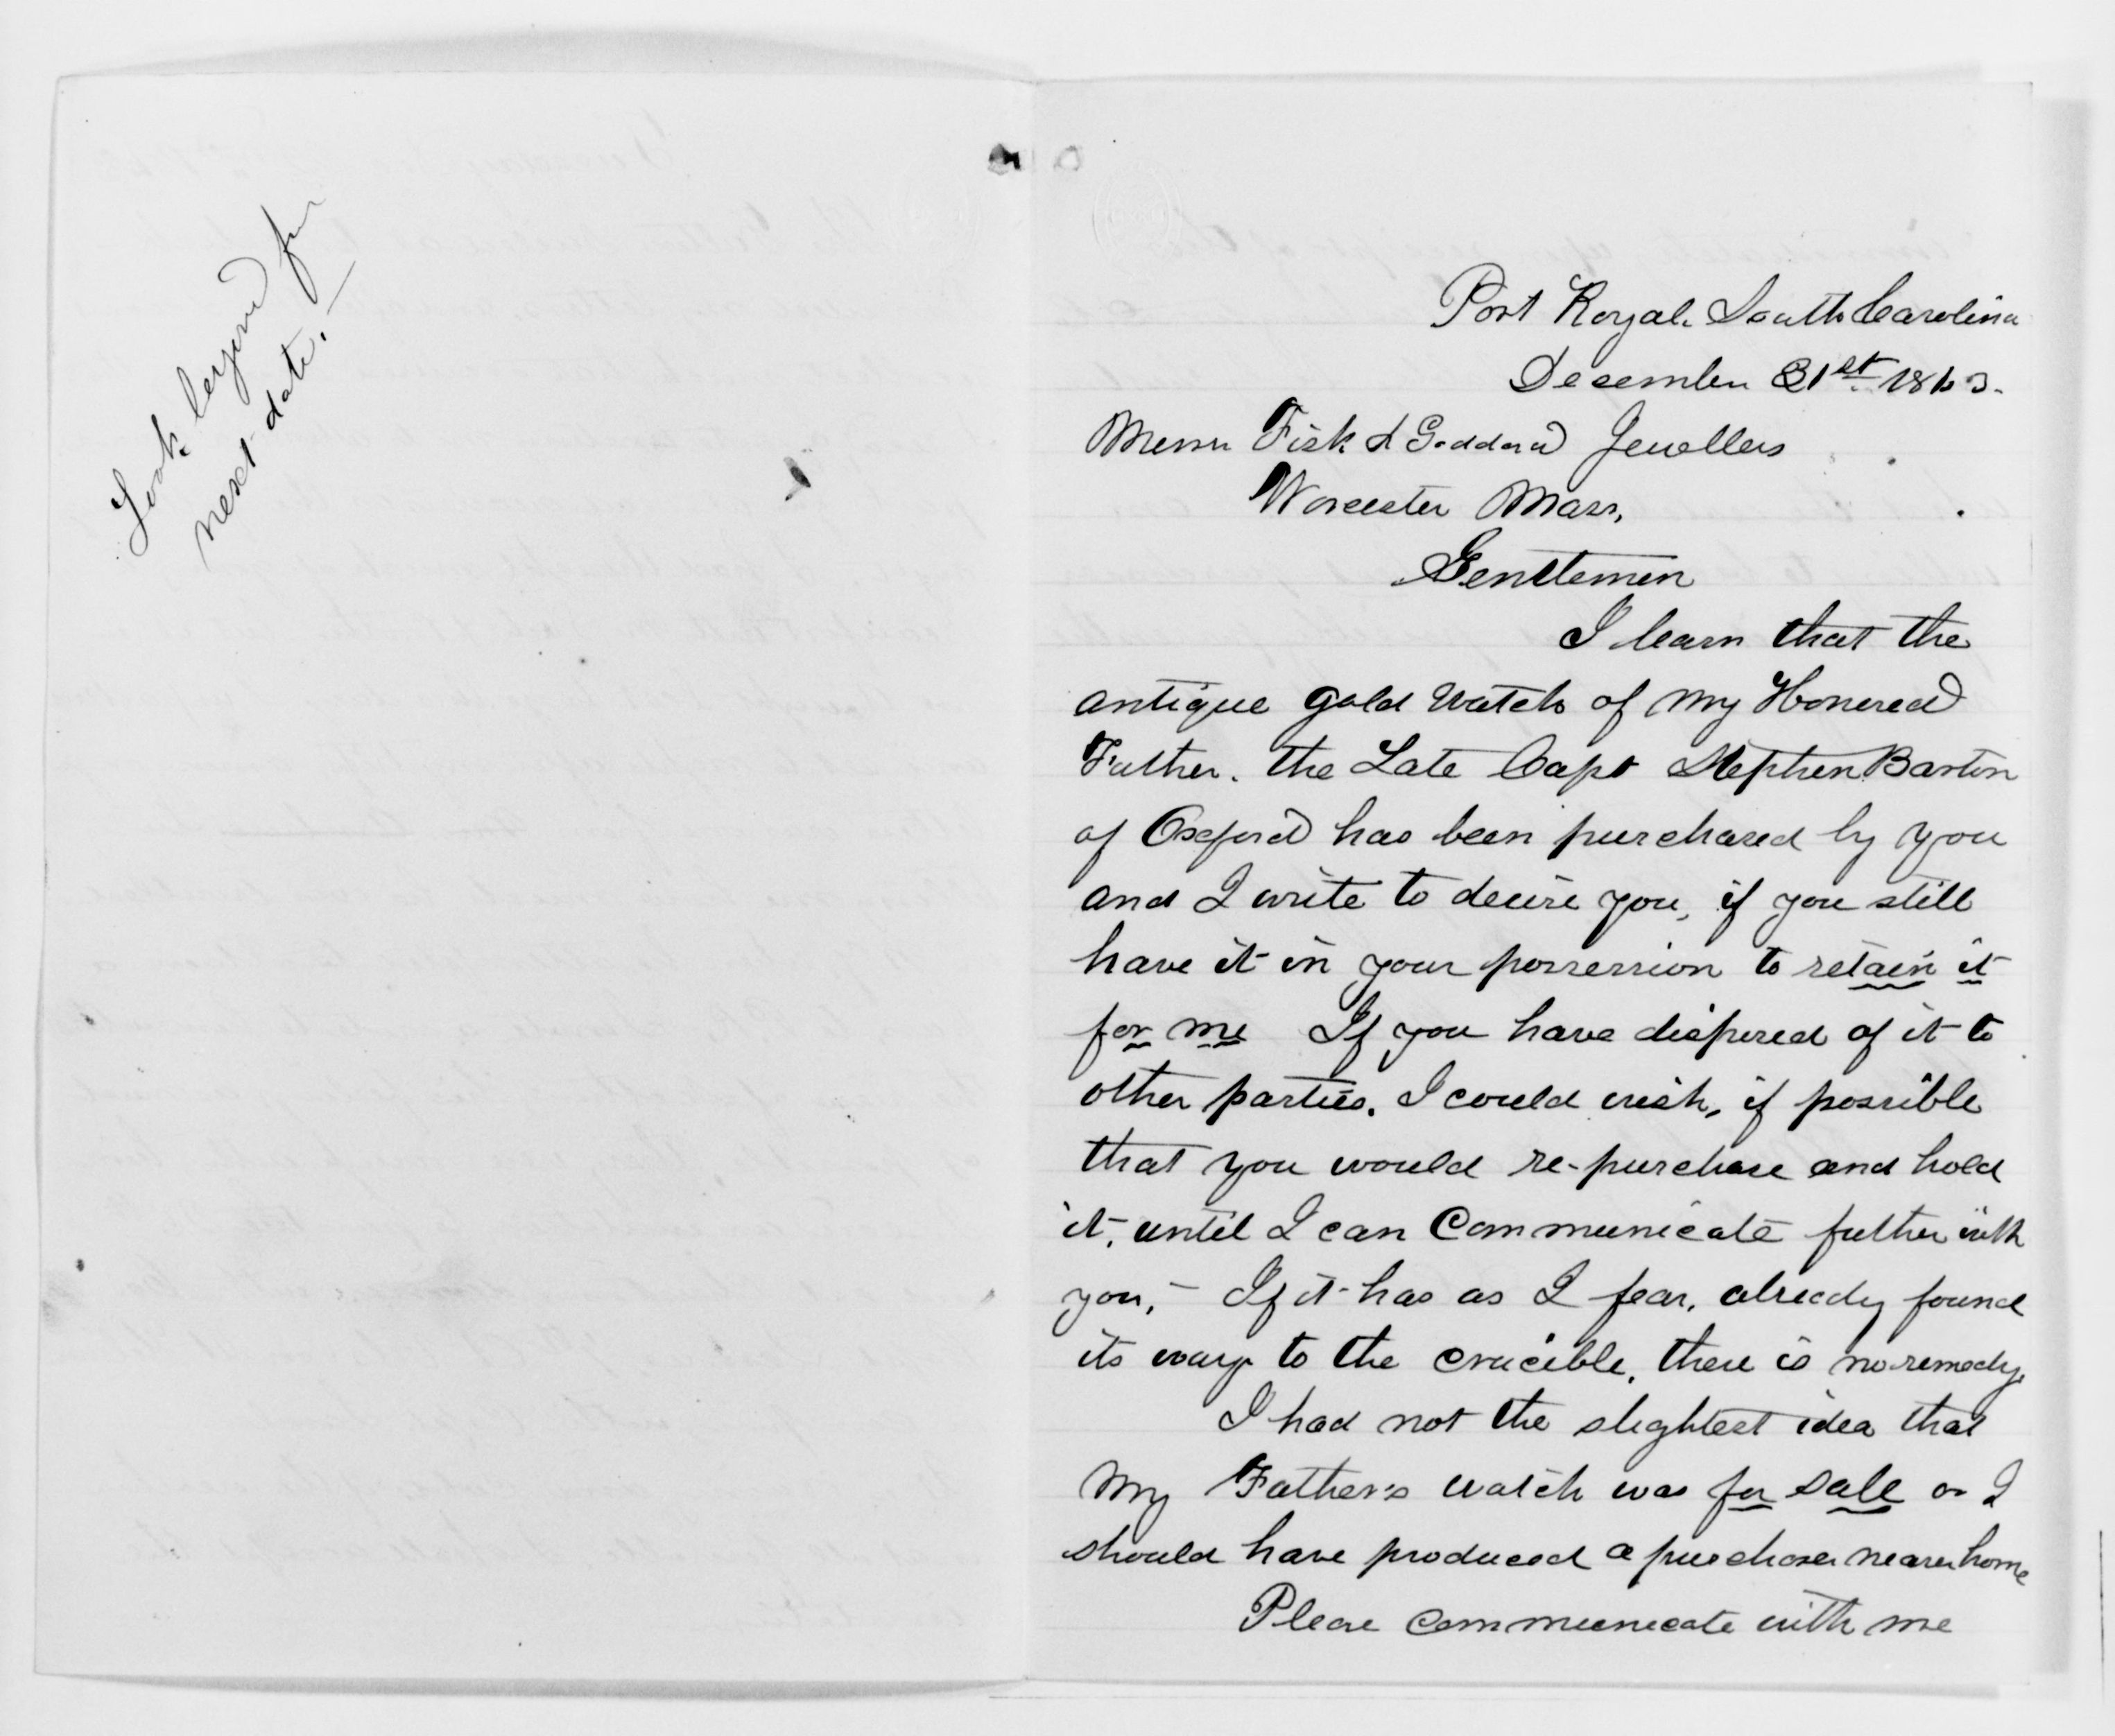 Look beyond for
next date.
Port Royal. South Carolina
December 31st 1863.
Messrs Fisk & Goddard Jewellers
Worcester Mass,
Gentlemen
I learn that the
antique gold watch of my Honored
Father. the Late Capt Stephen Barton
of Oxford has been purchased by you
and I write to desire you, if you still
have it in your possession to retain it
for me If you have disposed of it to
other parties. I could wish, if possible
that you would re-purchase and hold
it, until I can Communicate futher with
you, - If it has as I fear, already found
its way to the crucible, there is no remedy.
I had not the slightest idea that
my Father's watch was for sale or I
should have produced a purchaser nearer home
Please communicate with me